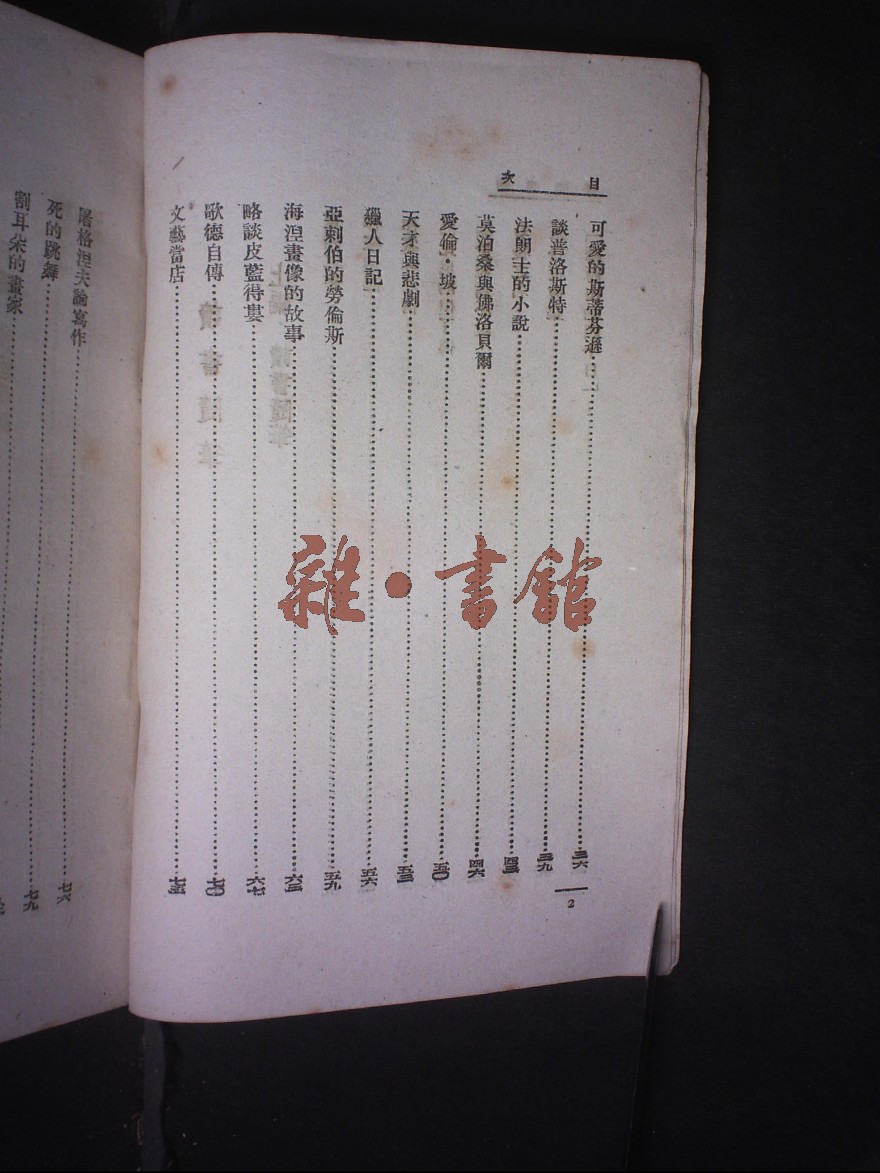 目次
可愛的斯蒂芬遜……三六
談普洛斯特……三九
法朗士的小說……四三
莫泊桑與佛洛貝爾……四六
愛倫·坡……五〇
天才與悲劇……五三
獵人日記……五六
亞剌伯的勞倫斯……五九
海涅畫像的故事……六三
略談皮藍得婁……六七
歌德自傳……七〇
文藝當店……七五
2
屠格涅夫論寫作……七六
死的跳舞……七九
割耳朵的畫家
雜·書館